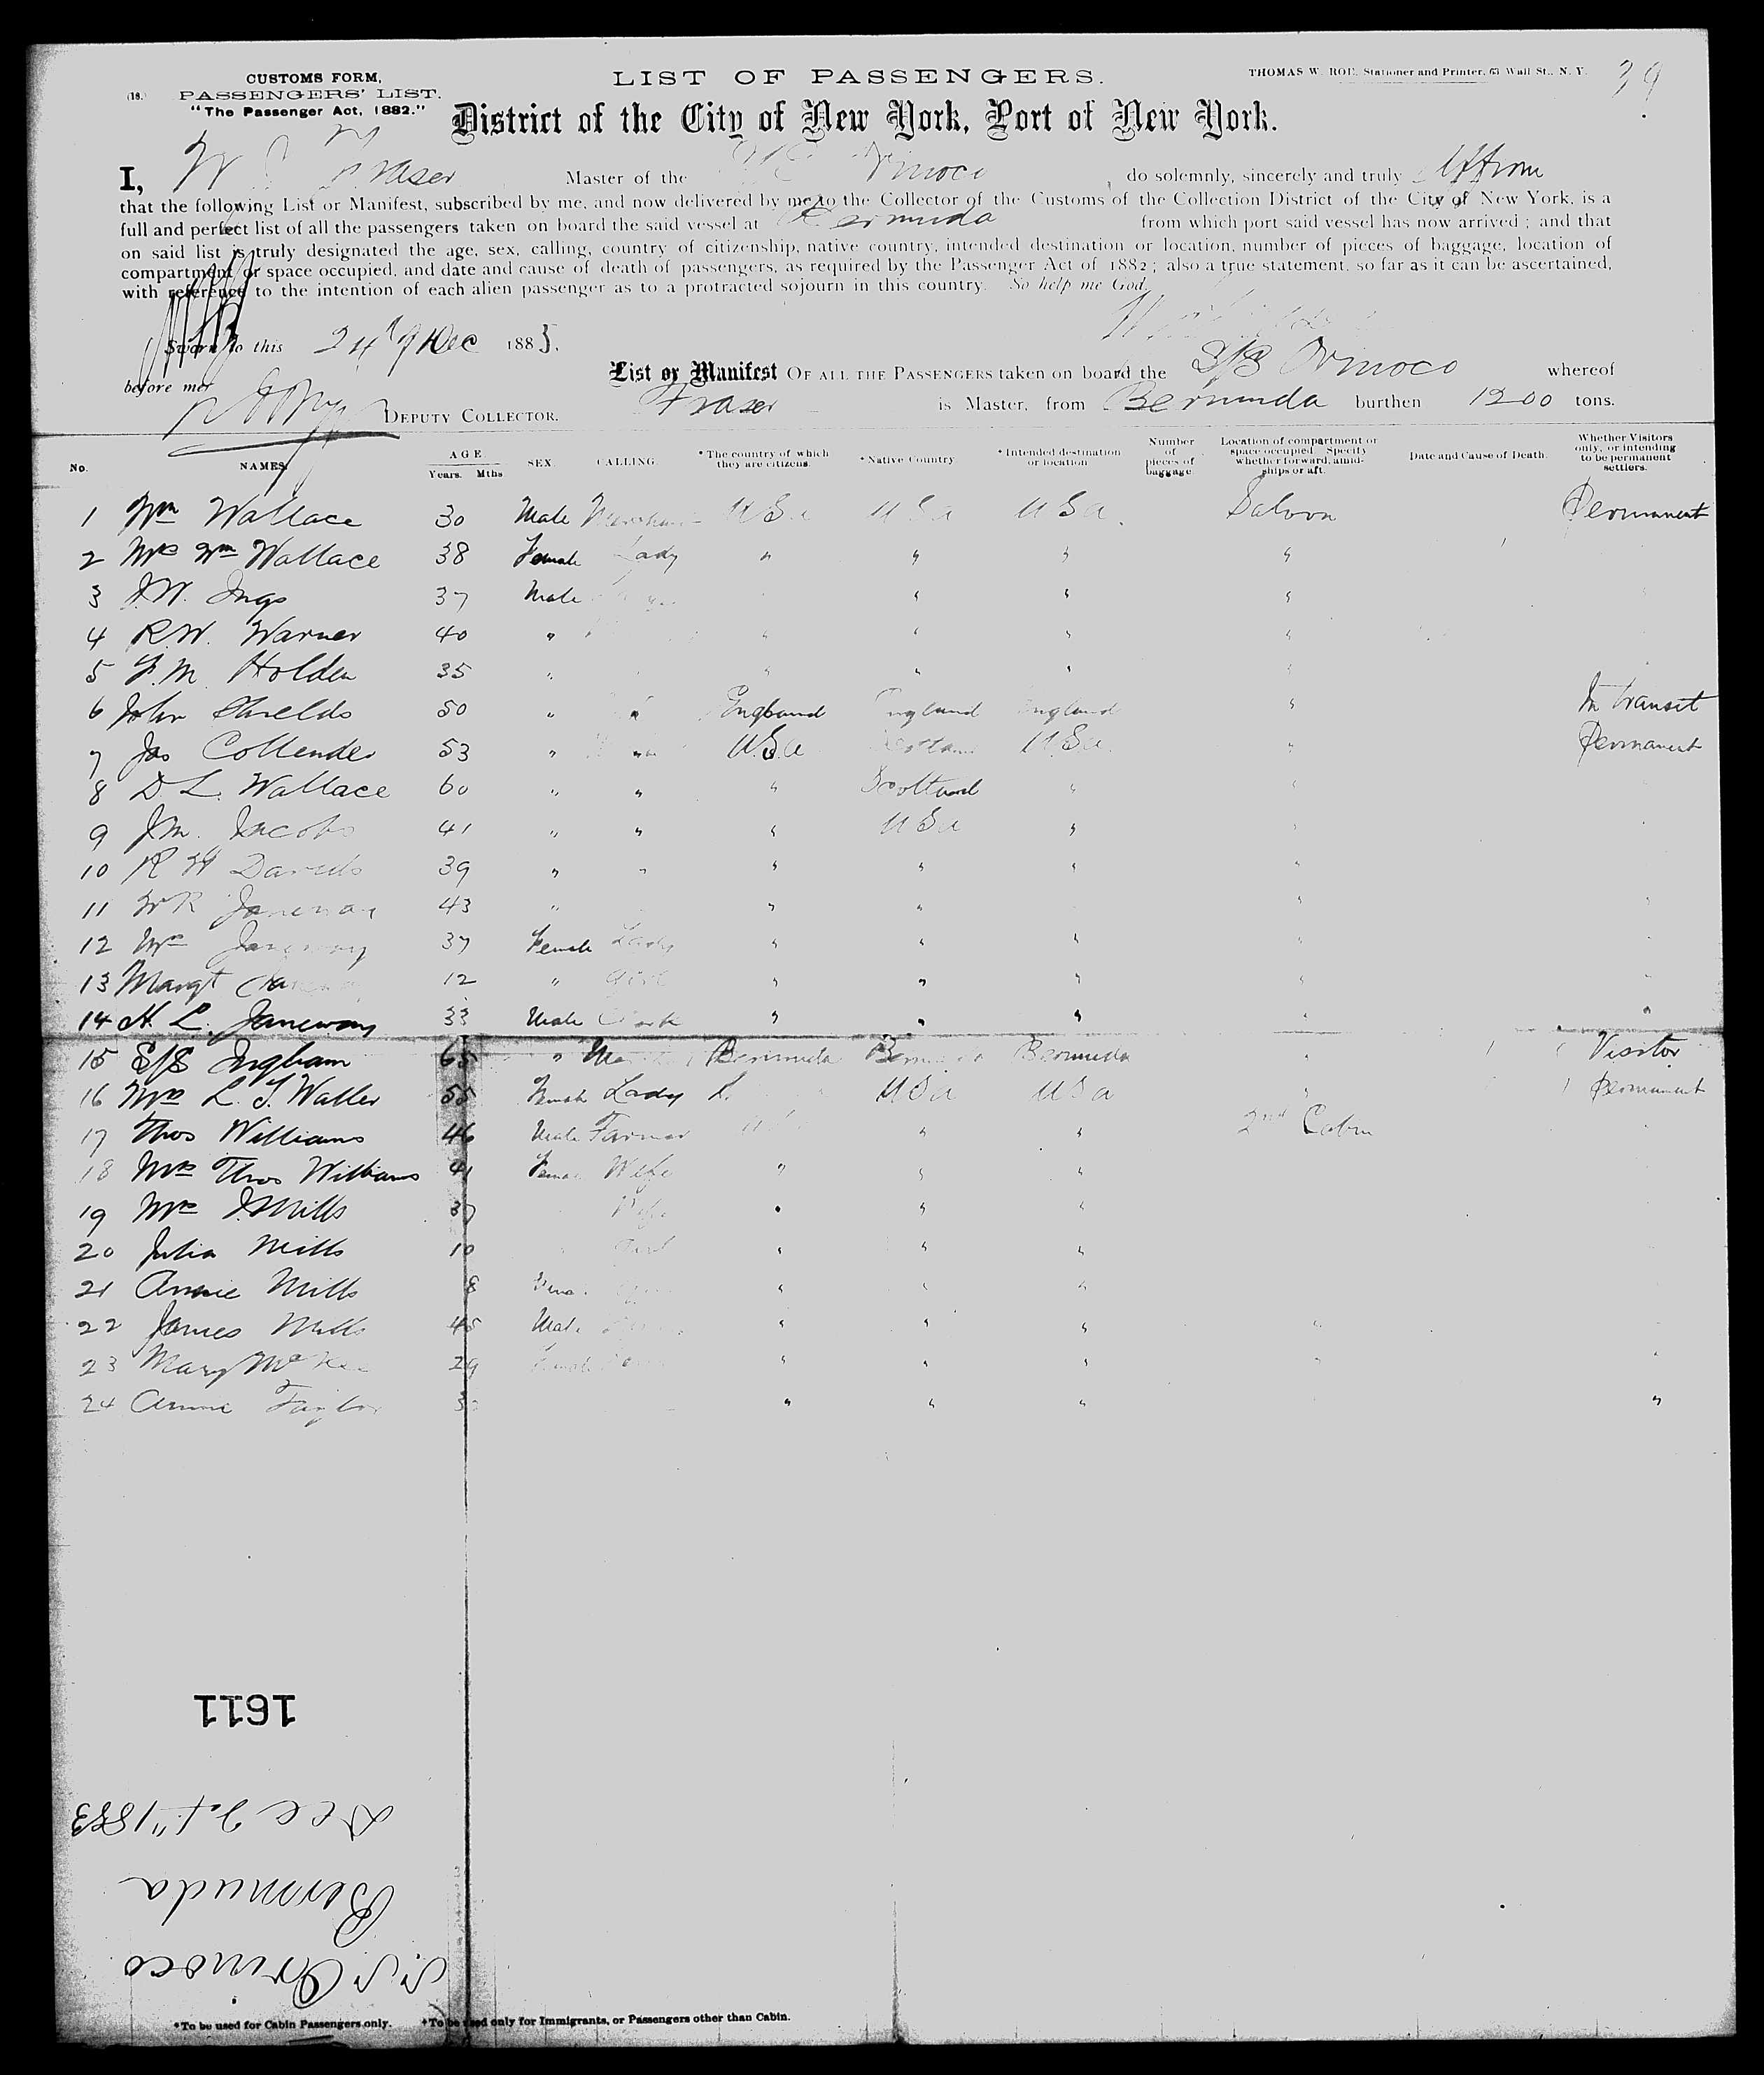 CUSTOMS FORM,
(18.) PASSENGERS' LIST.
"The Passenger Act, 1882."
LIST OF PASSENGERS.
THOMAS W. ROE, Stationer and Printer, 63 Wall St., N. Y.
39
District of the City of New York, Port of New York.
I, W Fraser Master of the Orinoco do solemnly, sincerely and truly affirm
that the following List or Manifest, subscribed by me, and now delivered by me to the Collector of the Customs of the Collection District of the City of New York, is a
full and perfect list of all the passengers taken on board the said vessel at Bermuda from which port said vessel has now arrived; and that
on said list is truly designated the age, sex, calling, country of citizenship, native country, intended destination or location, number of pieces of baggage, location of
compartment or space occupied, and date and cause of death of passengers, as required by the Passenger Act of 1882; also a true statement, so far as it can be ascertained,
with reference to the intention of each alien passenger as to a protracted sojourn in this country. So help me God.
Sworn to this 24th Dec 1883.
before me
DEPUTY COLLECTOR.
List or Manifest OF ALL THE PASSENGERS taken on board the S/S Orinoco whereof
Fraser is Master, from Bermuda burthen 1200 tons.
No. NAMES. AGE Years. Mths. SEX. CALLING. *The country of which they are citizens. *Native Country *Intended destination or location Number of pieces of baggage. Location of compartment or space occupied. Specify whether forward, amidships or aft. Date and Cause of Death. Whether Visitors only, or intending to be permanent settlers.
1 Wm Wallace 30 Male Merchant USa USa USa Saloon Permanent
2 Mrs Wm Wallace 38 Female Lady " " " "
3 J.W. Ings 37 Male " " "
4 R.W. Warner 40 " " " " "
5 F.M. Holden 35 " " " " "
6 John Shields 50 " " England England England " In transit
7 Jas Collender 53 " " USa Scotland USa " Permanent
8 D L. Wallace 60 " " " Scotland " "
9 J.M. Jacobs 41 " " " USa " "
10 R W Davids 39 " " " " " "
11 W R Janeway 43 " " " "
12 Mrs Janeway 37 Female Lady " " " "
13 Margt Janeway 12 " Girl " " " "
14 H. L. Janeway 33 Male Clerk " " " " "
15 S/S Ingham 65 " Bermuda Bermuda Bermuda " Visitor
16 Mrs L. T. Waller 55 Female Lady USa USa " Permanent
17 Thos Williams 46 Male Farmer " " 2nd Cabin
18 Mrs Thos Williams 41 Female Wife " " "
19 Mrs J Mills 37 Wife " " "
20 Julia Mills 10 Girl " " "
21 Annie Mills 8 " " "
22 James Mills 45 Male " " " "
23 Mary 29 Female " " " "
24 Annie Taylor " " " "
1611
Dec 24" 1883
Bermuda
S.S. Orinoco
*To be used for Cabin Passengers only. †To be used only for Immigrants, or Passengers other than Cabin.